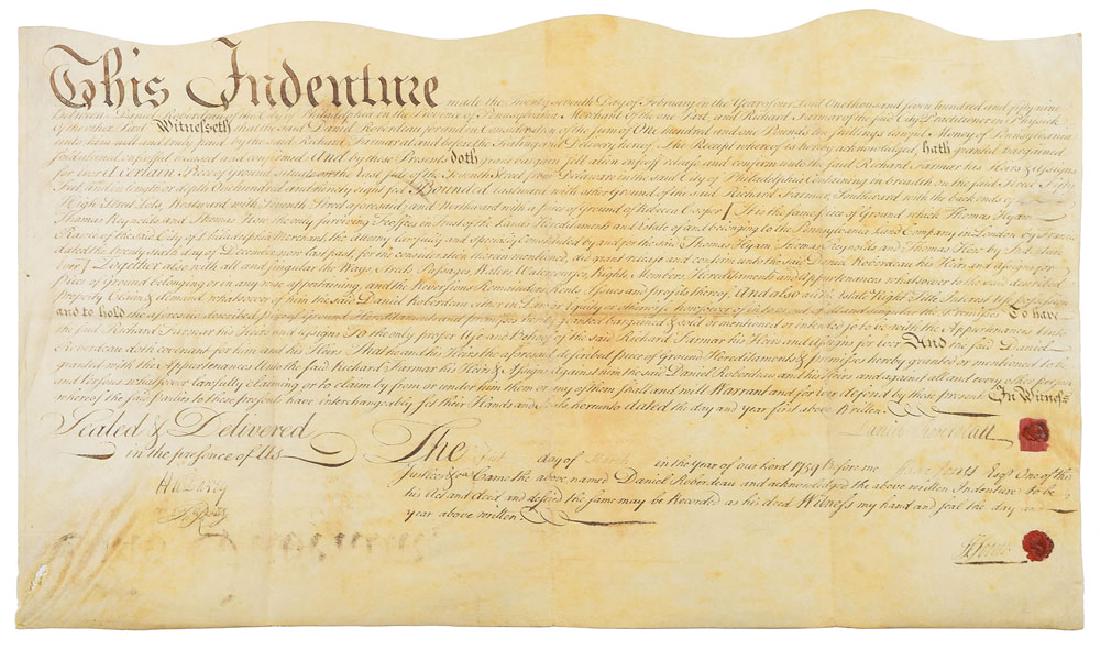 This Indenture made the Twenty seventh Day of February in the Year of our Lord One thousand seven hundred and fifty nine
Between Daniel Roberdeau of the City of Philadelphia in the Province of Pennsylvania Merchant of the one Part, and Richard Farmar of the said City Practitioner in Physick
of the other Part Witnesseth that the said Daniel Roberdeau for and in Consideration of the sum of One hundred and one Pounds ten shillings Lawful Money of Pennsylvania
unto him well and truly paid by the said Richard Farmar at and before the Sealing and Delivery hereof The Receipt whereof is hereby acknowledged hath granted bargained
sold aliened enfeoffed released and confirmed And by these Presents doth grant bargain sell alien enfeoff release and confirm unto the said Richard Farmar his Heirs & Assigns
for ever A Certain Piece of Ground Situate on the East side of the Seventh Street from Delaware in the said City of Philadelphia Containing in breadth on the said Street Eight
Feet and in length or depth One hundred and ninety eight feet Bounded Eastward with other Ground of the said Richard Farmar, Southward with the back ends of
High Street Lots, Westward with Seventh Street aforesaid, and Northward with a piece of Ground of Rebecca Cooper It is the same piece of Ground which Thomas Hyam
Thomas Reynolds and Thomas How the only surviving Feoffees in Trust of the Lands Hereditaments and Estate of and belonging to the Pennsylvania Land Company in London By Francis
Rawle of the said City of Philadelphia Merchant, the Attorney Constituted by and for the said Thomas Hyam Thomas Reynolds and Thomas How by Indenture
dated the Twenty sixth day of December now last past, for the consideration therein mentioned, did grant release and confirm unto the said Daniel Roberdeau his Heirs and Assigns for
ever Together also with all and singular the Ways, Streets, Passages, Waters, Watercourses, Rights, Members Hereditaments and Appurtenances whatsoever to the said described
Piece of Ground belonging or in any wise appertaining, and the Reversions Remainders, Rents, Issues and profits thereof, And also all the Estate Right Title Interest Use Possession
property Claim & demand whatsoever of him the said Daniel Roberdeau either in Law or Equity or otherwise howsoever of in to or out of all and singular the Premises To have
and to hold the aforesaid described Piece of Ground Hereditaments and premises hereby granted bargained & sold or mentioned or intended so to be with the Appurtenances unto
the said Richard Farmar his Heirs and Assigns To the only proper Use and Behoof of the said Richard Farmar his Heirs and Assigns for ever And the said Daniel
Roberdeau doth covenant for him and his Heirs That he and his Heirs the aforesaid described piece of Ground Hereditaments & premises hereby granted or mentioned to be
granted with the Appurtenances Unto the said Richard Farmar his Heirs & Assigns against him the said Daniel Roberdeau and his Heirs and against all and every other person
and Persons whatsoever lawfully claiming or to claim by from or under him them or any of them shall and will Warrant and for ever defend by these presents In Witness
whereof the said parties to these presents have interchangeably set their Hands and Seals hereunto dated the day and year first above Written
Daniel Roberdeau
Sealed & Delivered
in the presence of Us
The first day of in the year of our Lord 1759 Before me Esqr. One of the
Justices &ca Came the above named Daniel Roberdeau and acknowledged the above written Indenture to be
his Act and deed and desired the same may be Recorded as his deed Witness my hand and seal the day and
year above written